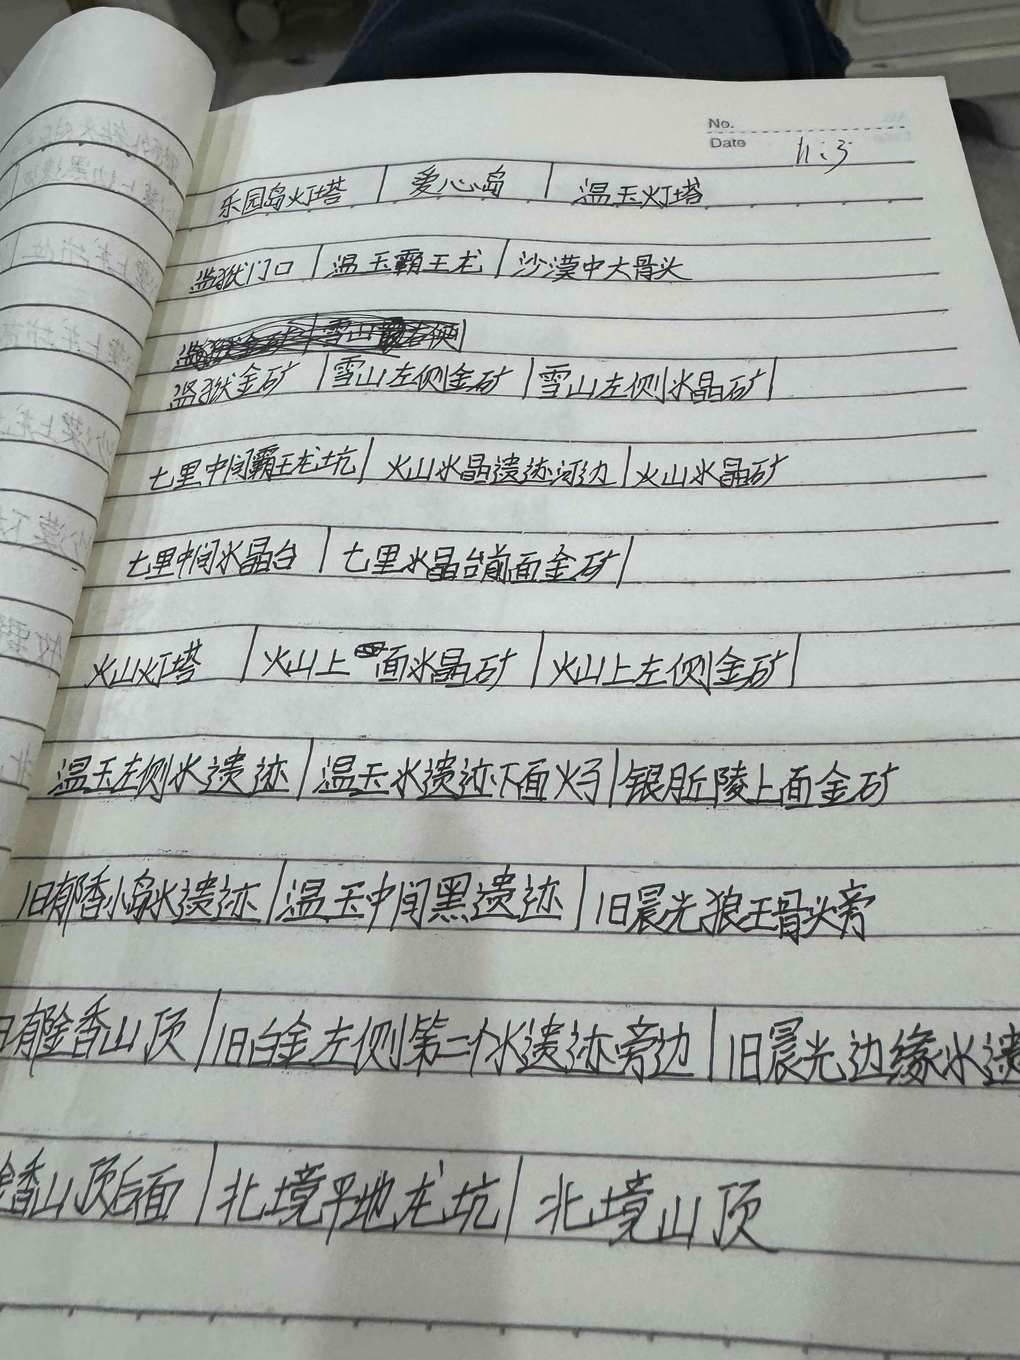 No.
Date 11:3
乐园岛灯塔 | 爱心岛 | 温玉灯塔
监狱门口 | 温玉霸王龙 | 沙漠中大骨头
监狱金矿 | 雪山左侧金矿 | 雪山左侧水晶矿 |
七里中间霸王龙坑 | 火山水晶遗迹河边 | 火山水晶矿
七里中间水晶台 | 七里水晶台前面金矿 |
火山灯塔 | 火山上面水晶矿 | 火山上左侧金矿 |
温玉左侧水遗迹 | 温玉水遗迹下面火子 | 银月丘陵上面金矿
旧郁香小岛水遗迹 | 温玉中间黑遗迹 | 旧晨光狼王骨头旁
旧郁金香山顶 | 旧白金左侧第二个水遗迹旁边 | 旧晨光边缘水遗
金香山顶后面 | 北境平地龙坑 | 北境山顶